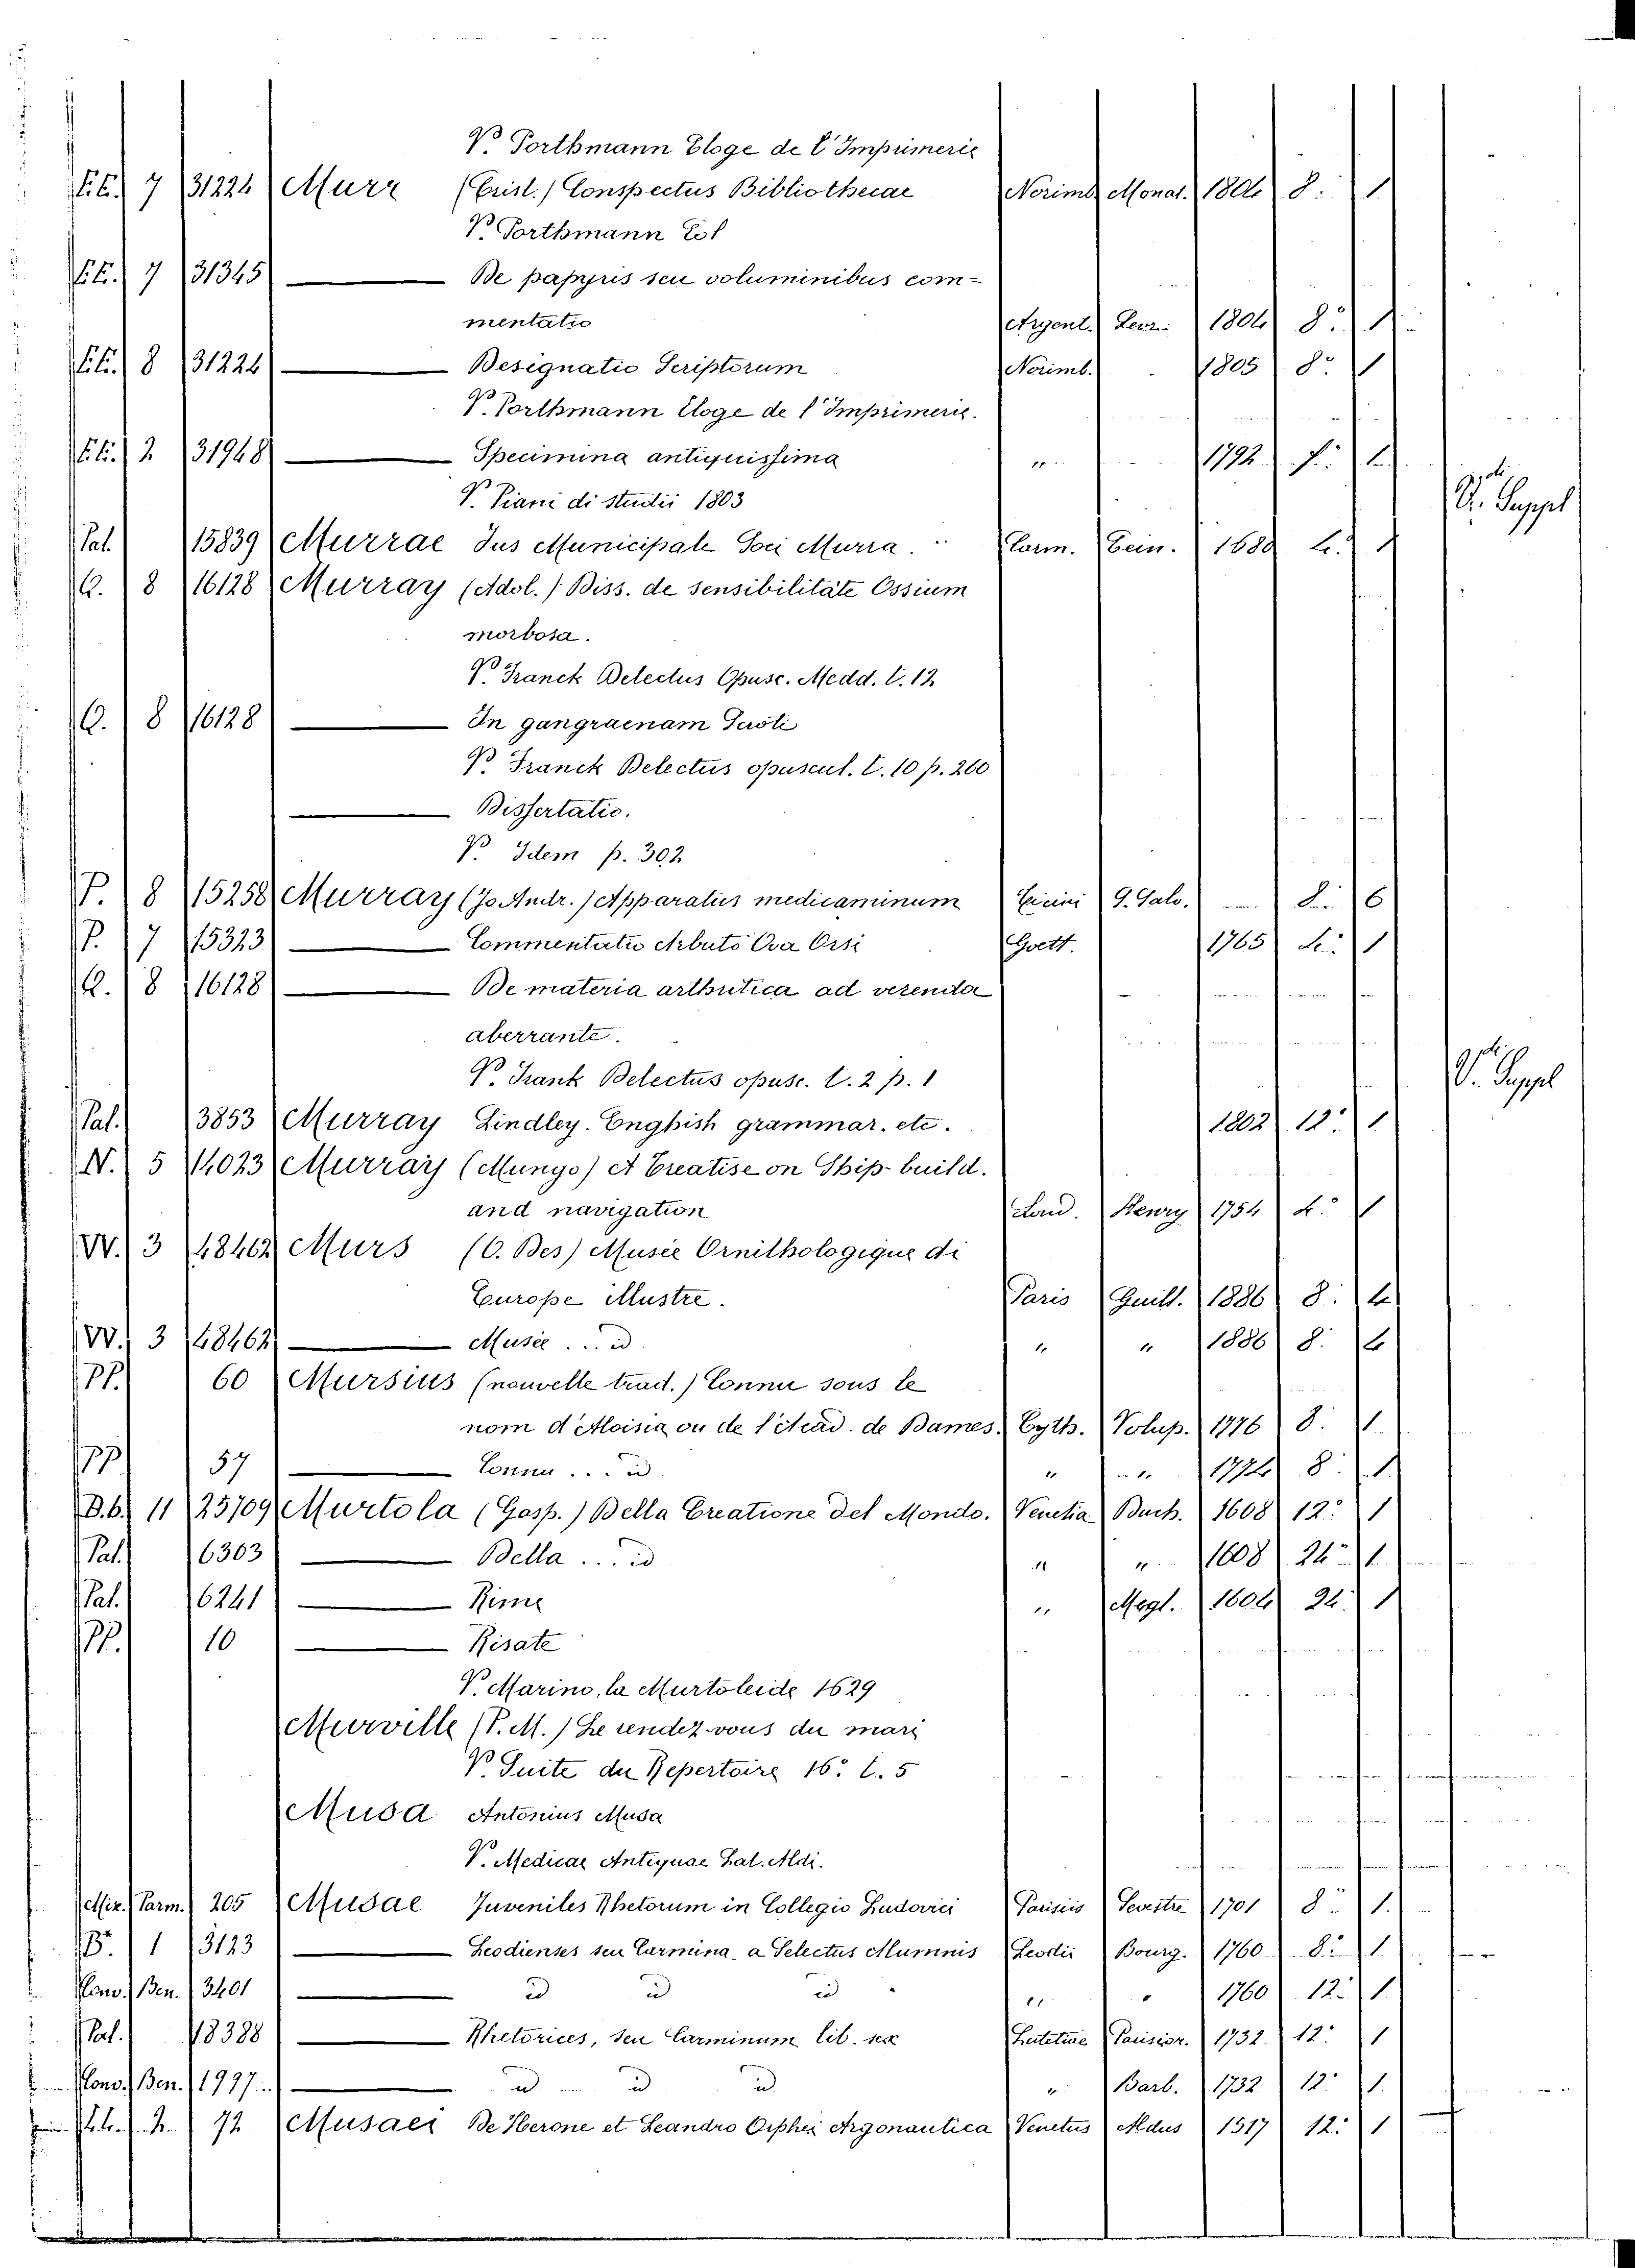 V. Porthmann Eloge de l'Imprimerie
7 31224 Murr (Crist.) Conspectus Bibliothecae Norimb. Monat. 1804 8° 1
V. Porthmann
7 31345 — De papyris seu voluminibus com-
mentatio Argent. Levr. 1804 8° 1
8 31224 — Designatio Scriptorum Norimb. 1805 8° 1
V. Porthmann Eloge de l'Imprimerie.
2 31948 — Specimina antiquissima " 1792 f. 1
V. Piani di studii 1803
V. Suppl
Pal. 15839 Murrae Jus Municipale Murra. 1
Q. 8 16128 Murray (Adol.) Diss. de sensibilitate Ossium
morbosa.
V. Franck Delectus Opusc. Medd. t. 12
Q. 8 16128 — In gangraenam
V. Franck Delectus opuscul. t. 10 p. 260
— Dissertatio.
V. Idem p. 302
P. 8 15258 Murray (Jo. Andr.) Apparatus medicaminum Ticini 8° 6
P. 7 15323 — Commentatio Arbuto Uva Ursi Goett. 1765 4° 1
Q. 8 16128 — De materia arthritica ad verenda
aberrante.
V. Frank Delectus opusc. t. 2 p. 1
V. Suppl
Pal. 3853 Murray Lindley. English grammar. etc. 1802 12° 1
N. 5 14023 Murray (Mungo) A Treatise on Ship-build.
and navigation Lond. Henry 1754 4° 1
W. 3 48462 Murs (O. Des) Musée Ornithologique di
Europe illustre. Paris 1886 8° 4
W. 3 48462 — Musée ... id. " " 1886 8°
PP. 60 Mursius (nouvelle trad.) Connu sous le
nom d'Aloisia ou de l'Acad. de Dames. Cyth. Volup. 1776 8° 1
PP. 57 — Connu ... id " " 1774 8° 1
D.b. 11 25709 Murtola (Gasp.) Della Creatione del Mondo. Venetia Duch. 1608 12° 1
Pal. 6303 — Della ... id " " 1608 24° 1
Pal. 6241 — Rime " Megl. 1604 24° 1
PP. 10 — Risate
V. Marino, la Murtoleide 1629
Murville (P. M.) Le rendez-vous du mari
V. Suite du Repertoire 16° t. 5
Musa Antonius Musa
V. Medicae Antiquae Aldi.
Parm. 205 Musae Juveniles Rhetorum in Collegio Ludovici Parisiis Sevestre 1701 8° 1
1 3123 — Leodienses seu Carmina a Selectus Alumnis Leodii Bourg. 1760 8° 1
Conv. Ben. 3401 — id id id " " 1760 12° 1
Pal. 18388 — Rhetorices, seu Carminum lib. sex Lutetiae Parisior. 1732 12° 1
Conv. Ben. 1997 — id id id " Barb. 1732 12° 1
2 72 Musaei De Herone et Leandro Orphei Argonautica Venetus Aldus 1517 12° 1